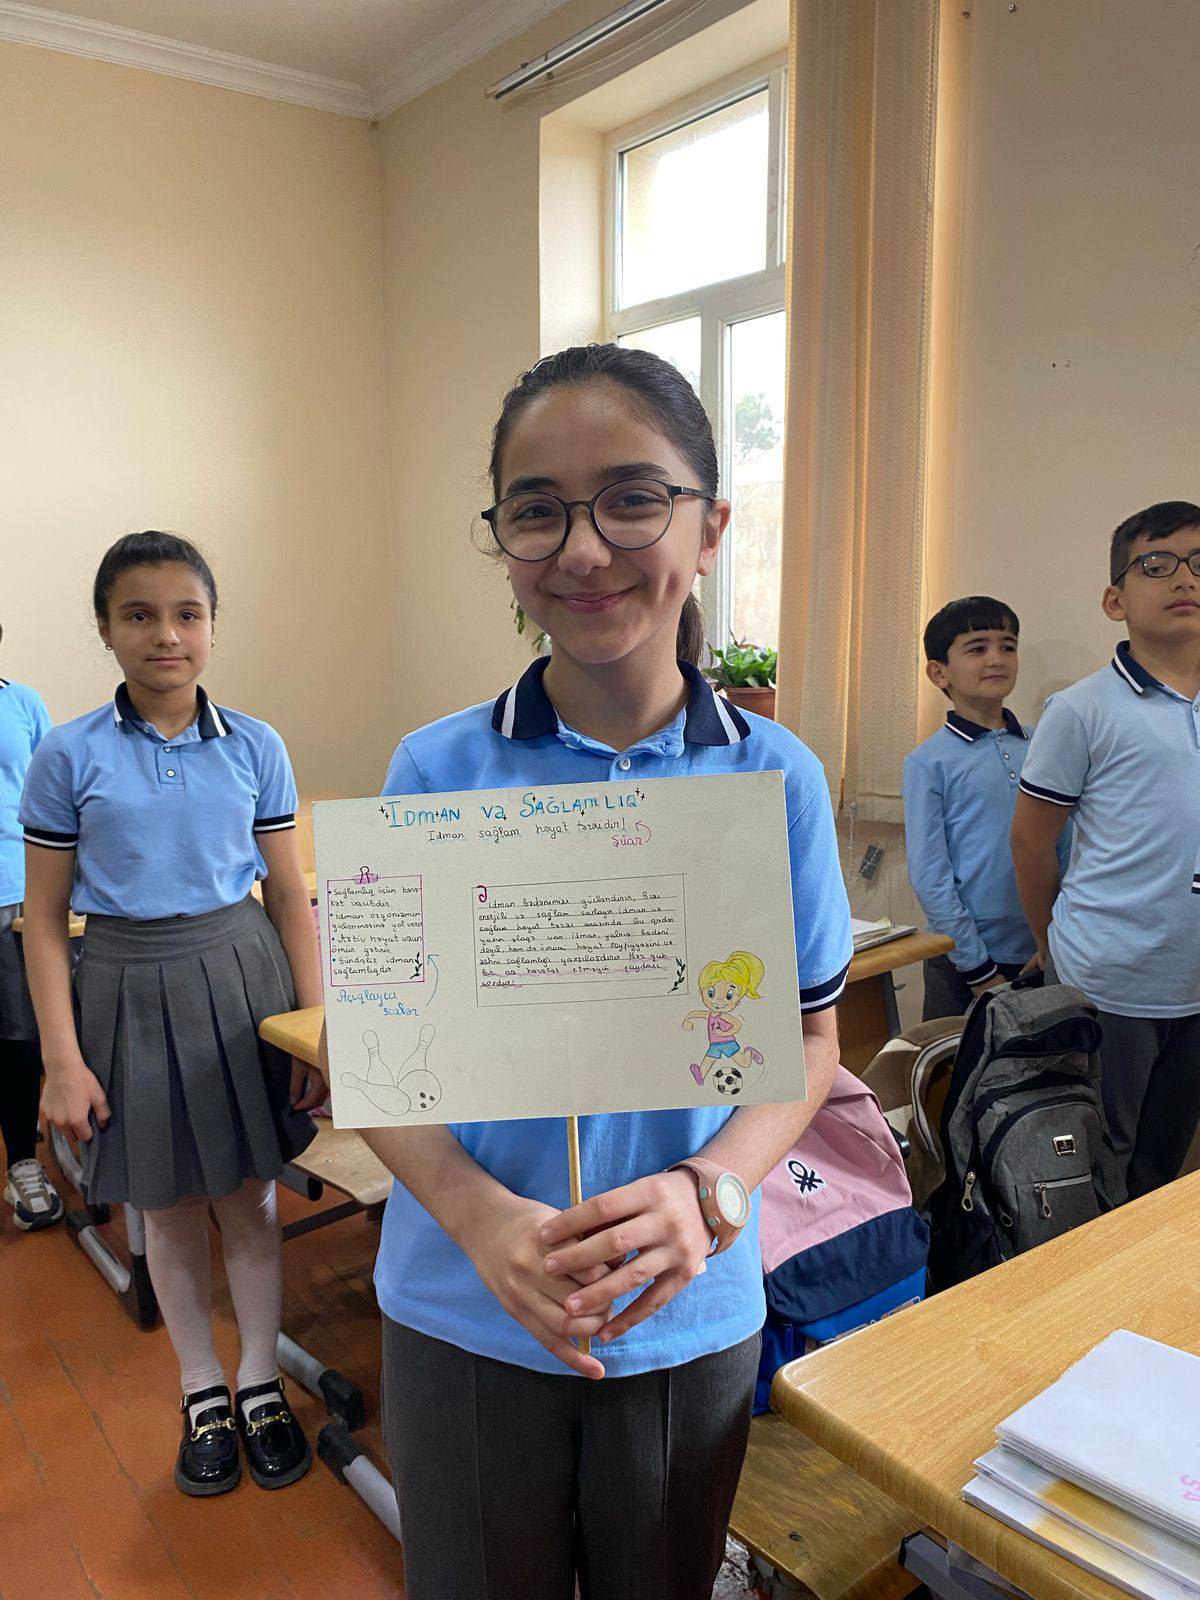 IDMAN və SAĞLAMLIQ
Idman sağlam həyat tərzidir!
Şüar
• Sağlamlıq üçün hərə-
kət vacibdir.
• Idman orqanizmin
güclənməsinə yol verir
• Aktiv həyat uzun
ömür gətirir.
• Gündəlik idman
sağlamlıqdır.
Açıqlayıcı
sözlər
Idman bədənimizi gücləndirir, Bizi
enerjili və sağlam saxlayır. Idman və
sağlam həyat tərzi arasında bu qədər
yaxın əlaqə var. Idman, yalnız bədəni
deyil, həm də ümumi həyat keyfiyyətini və
zehni sağlamlığı yaxşılaşdırır. Hər gün
bir az hərəkət etməyin faydası
vardır!
12